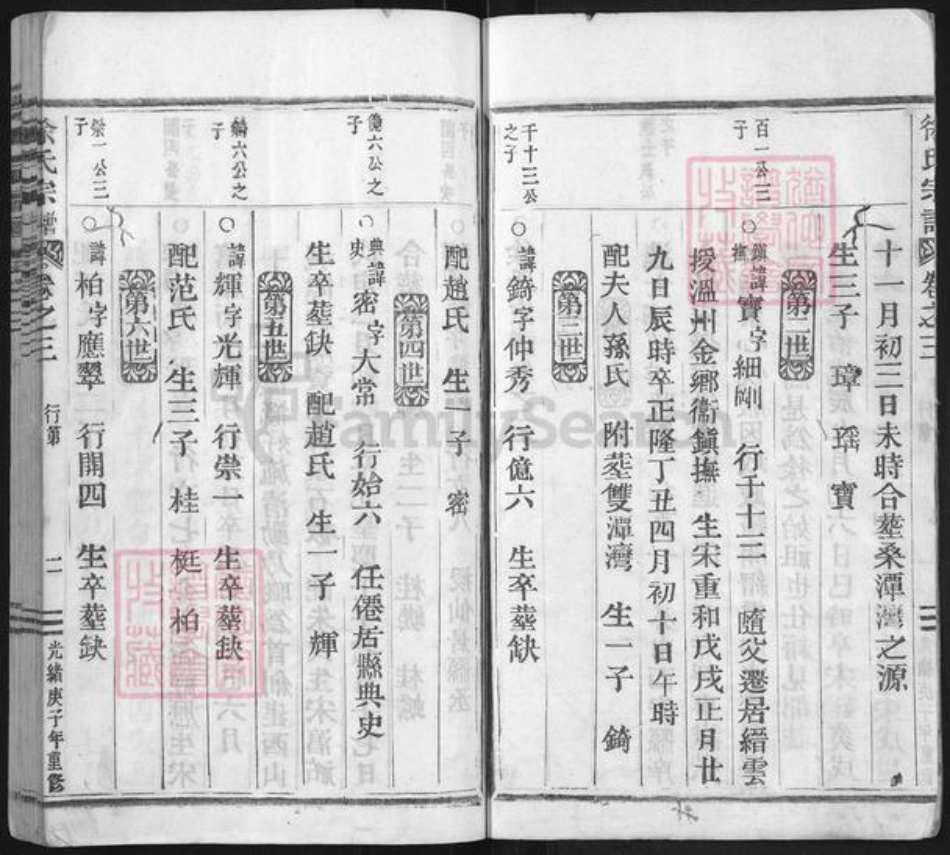 徐氏宗譜 卷之三
十一月初三日未時合塟桑潭灣之源
生三子 璋 瑶 寶
第二世
百一公三子
鎮撫 諱寶 字細剛 行千十三 隨父遷居縉雲
授溫州金鄉衞鎭撫 生宋重和戊戌正月廿
九日辰時卒正隆丁丑四月初十日午時
配夫人孫氏 附塟雙潭灣 生一子 錡
第三世
千十三公之子
諱錡 字仲秀 行億六 生卒塟缺
配趙氏 生一子 密
第四世
億六公之子
典史 諱密 字大常 行始六 任僊居縣典史
生卒塟缺 配趙氏 生一子 輝
第五世
六公之子
諱輝 字光輝 行崇一 生卒塟缺
配范氏 生三子 桂 梃 柏
第六世
崇一公三子
諱柏 字應翠 行開四 生卒塟缺
徐氏宗譜 卷之三 行第 二 光緒庚子年重修
FamilySearch